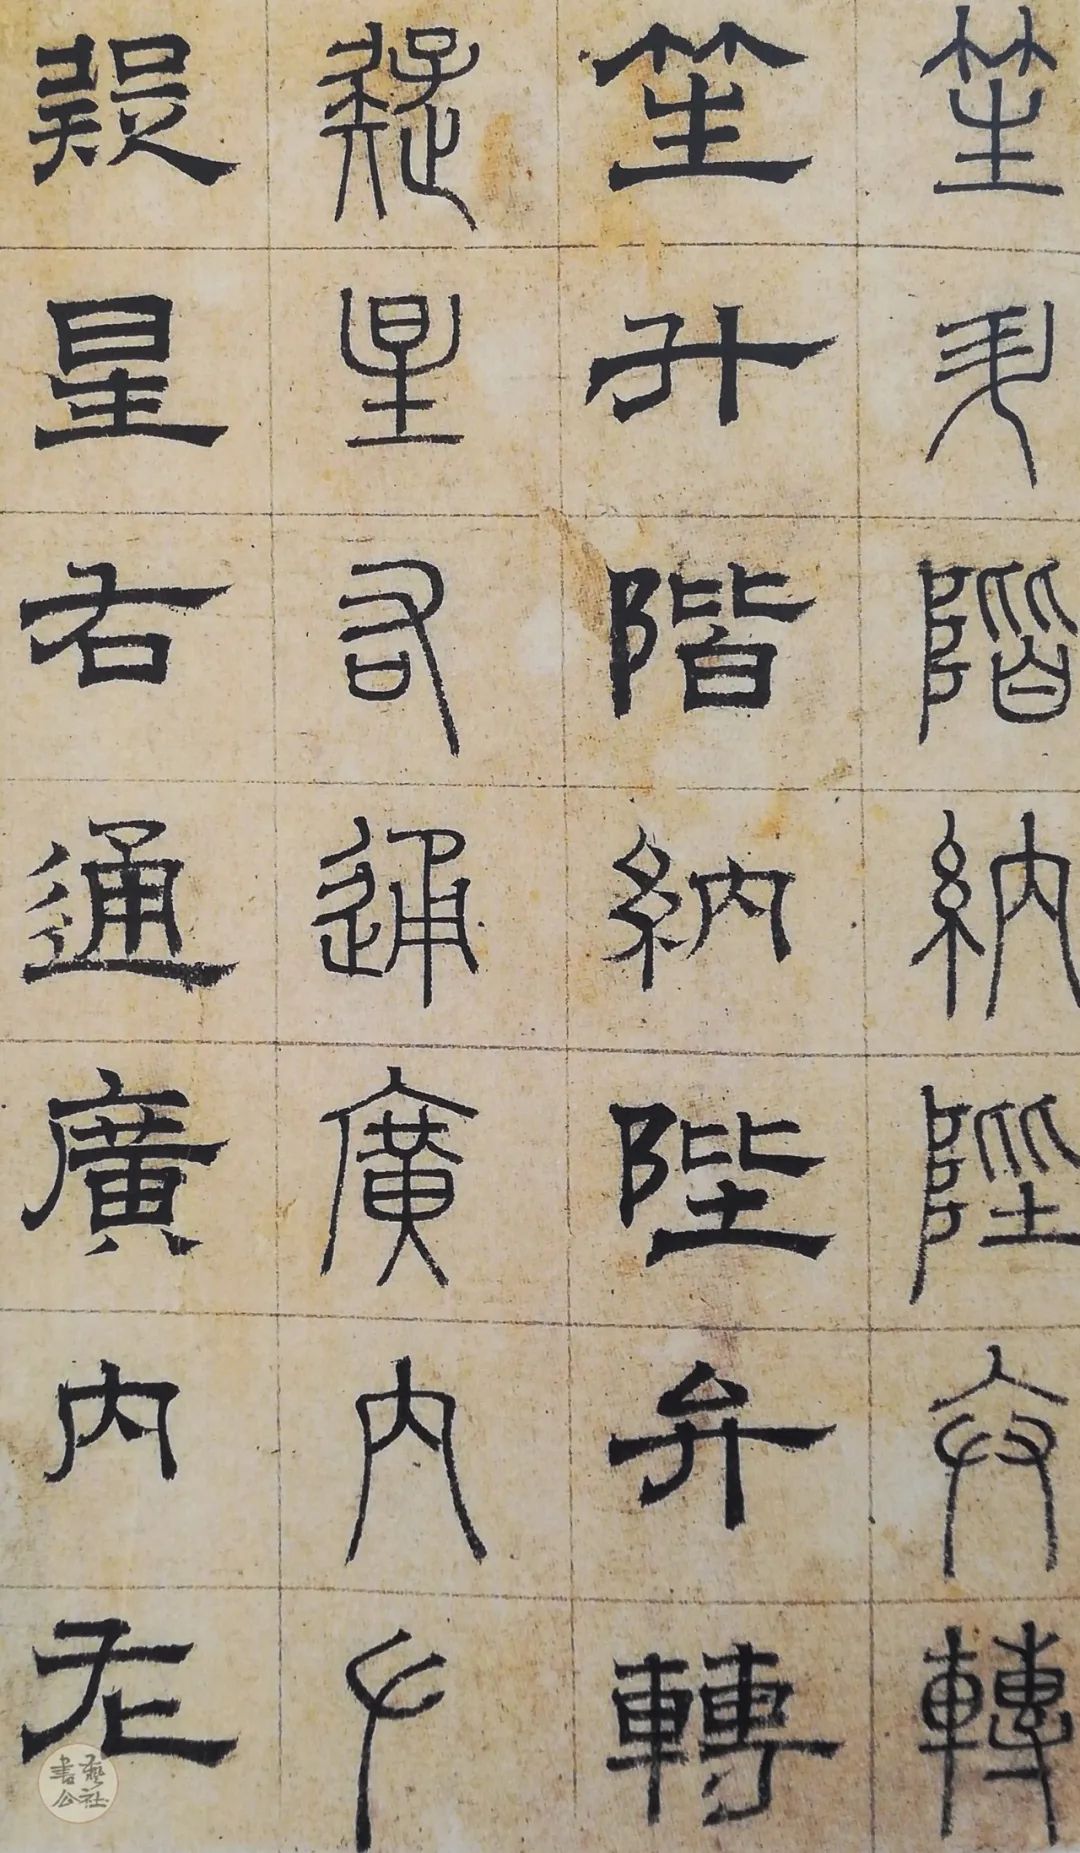 笙升階納陛弁轉
笙升階納陛弁轉
疑星右通廣內左
疑星右通廣內左
書藝公社